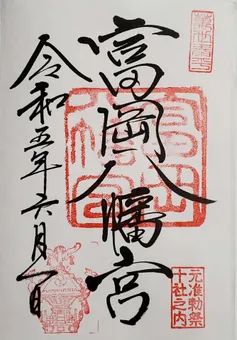 元准勅祭
十社之内
富岡八幡宮
令和五年六月一日